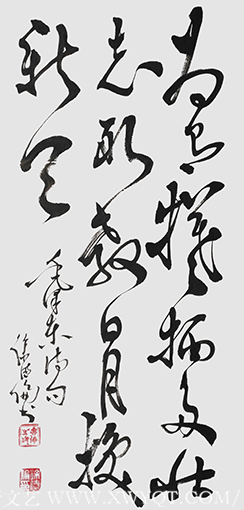 为有牺牲多壮
志敢教日月换
新天
毛泽东诗句
文艺 WWW.XWYQT.COM/